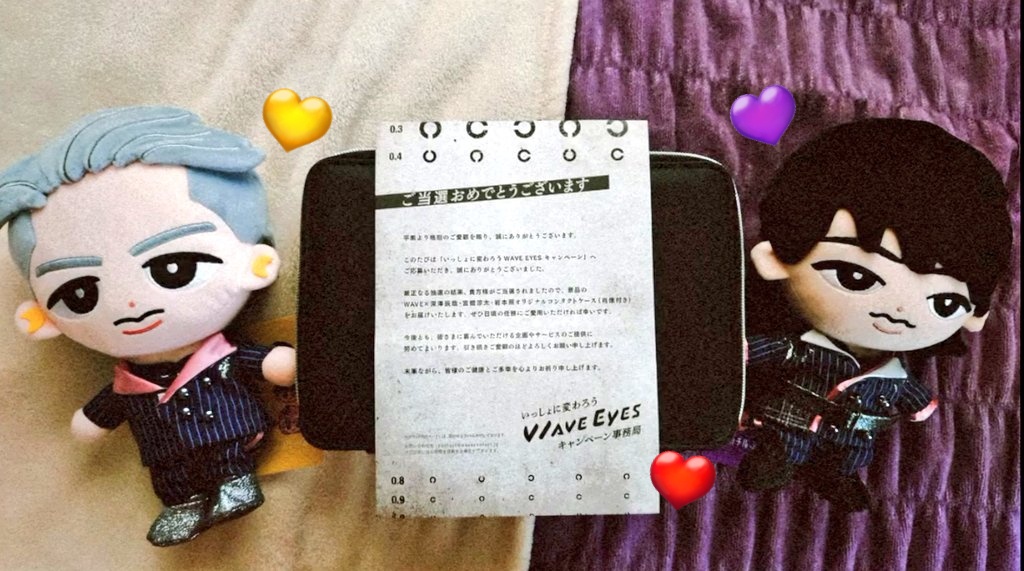 0.3
0.4
ご当選おめでとうございます
平素より格別のご愛顧を賜り、誠にありがとうございます。
このたびは「いっしょに変わろう WAVE EYES キャンペーン」へ
ご応募いただき、誠にありがとうございました。
厳正なる抽選の結果、貴方様がご当選されましたので、景品の
WAVE×深澤辰哉・宮舘涼太・岩本照オリジナルコンタクトケース(肖像付き)
をお届けいたします。ぜひ日頃の任務にご愛用いただければ幸いです。
今後とも、皆さまに喜んでいただける企画やサービスのご提供に
努めてまいります。引き続きご愛顧のほどよろしくお願い申し上げます。
末筆ながら、皆様のご健康とご多幸を心よりお祈り申し上げます。
いっしょに変わろう
WAVE EYES
キャンペーン事務局
0.8
0.9